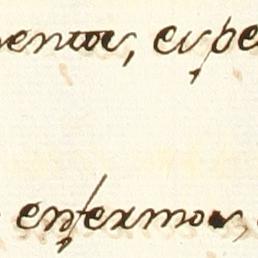 mentos, espe
enfermos,